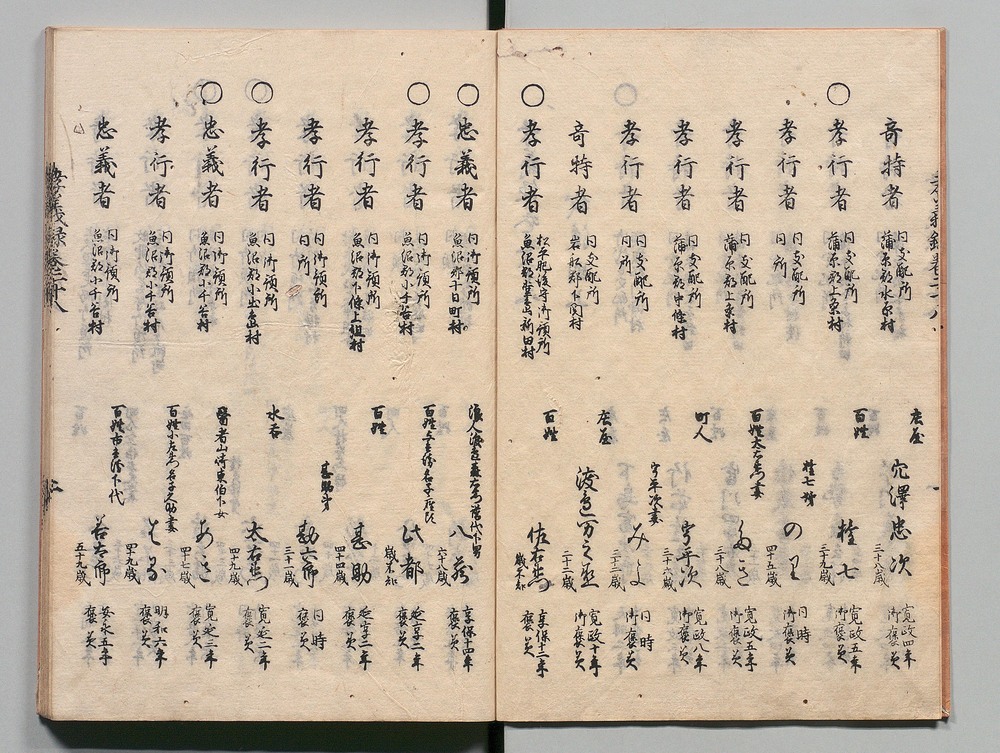 奇特者
同支配所
蒲原郡水原村
庄屋
穴澤忠次
三十八歳
寛政四年
御褒美
○
孝行者
同支配所
蒲原郡上条村
百姓
権七
三十九歳
寛政五年
御褒美
孝行者
同支配所
同所
権七姉
のり
四十五歳
同時
御褒美
孝行者
同支配所
蒲原郡上条村
百姓太右衛門妻
三十八歳
寛政五年
御褒美
孝行者
同支配所
蒲原郡中條村
町人
宇平次
三十三歳
寛政八年
御褒美
孝行者
同支配所
同所
宇平次妻
みよ
三十二歳
同時
御褒美
奇特者
同支配所
岩船郡下関村
庄屋
渡邊万之丞
二十二歳
寛政十年
御褒美
○
孝行者
松平肥後守御預所
魚沼郡新田村
百姓
佐右衛門
歳不知
享保十二年
褒美
○
忠義者
同御預所
魚沼郡十日町村
八蔵
六十八歳
享保十四年
褒美
○
孝行者
同御預所
魚沼郡小千谷村
此都
歳不知
延享二年
褒美
孝行者
同御預所
魚沼郡下條上組村
百姓
甚助
四十四歳
延享三年
褒美
孝行者
同御預所
同所
甚助弟
勘六郎
三十一歳
同時
褒美
○
孝行者
同御預所
魚沼郡小出島村
水呑
太右衛門
四十九歳
寛延二年
褒美
○
忠義者
同御預所
魚沼郡小千谷村
醫者山崎東伯下女
あさ
四十七歳
寛延三年
褒美
孝行者
同御預所
魚沼郡小千谷村
四十九歳
明和六年
褒美
忠義者
同御預所
魚沼郡小千谷村
五十九歳
安永五年
褒美
孝義録巻二十八
二